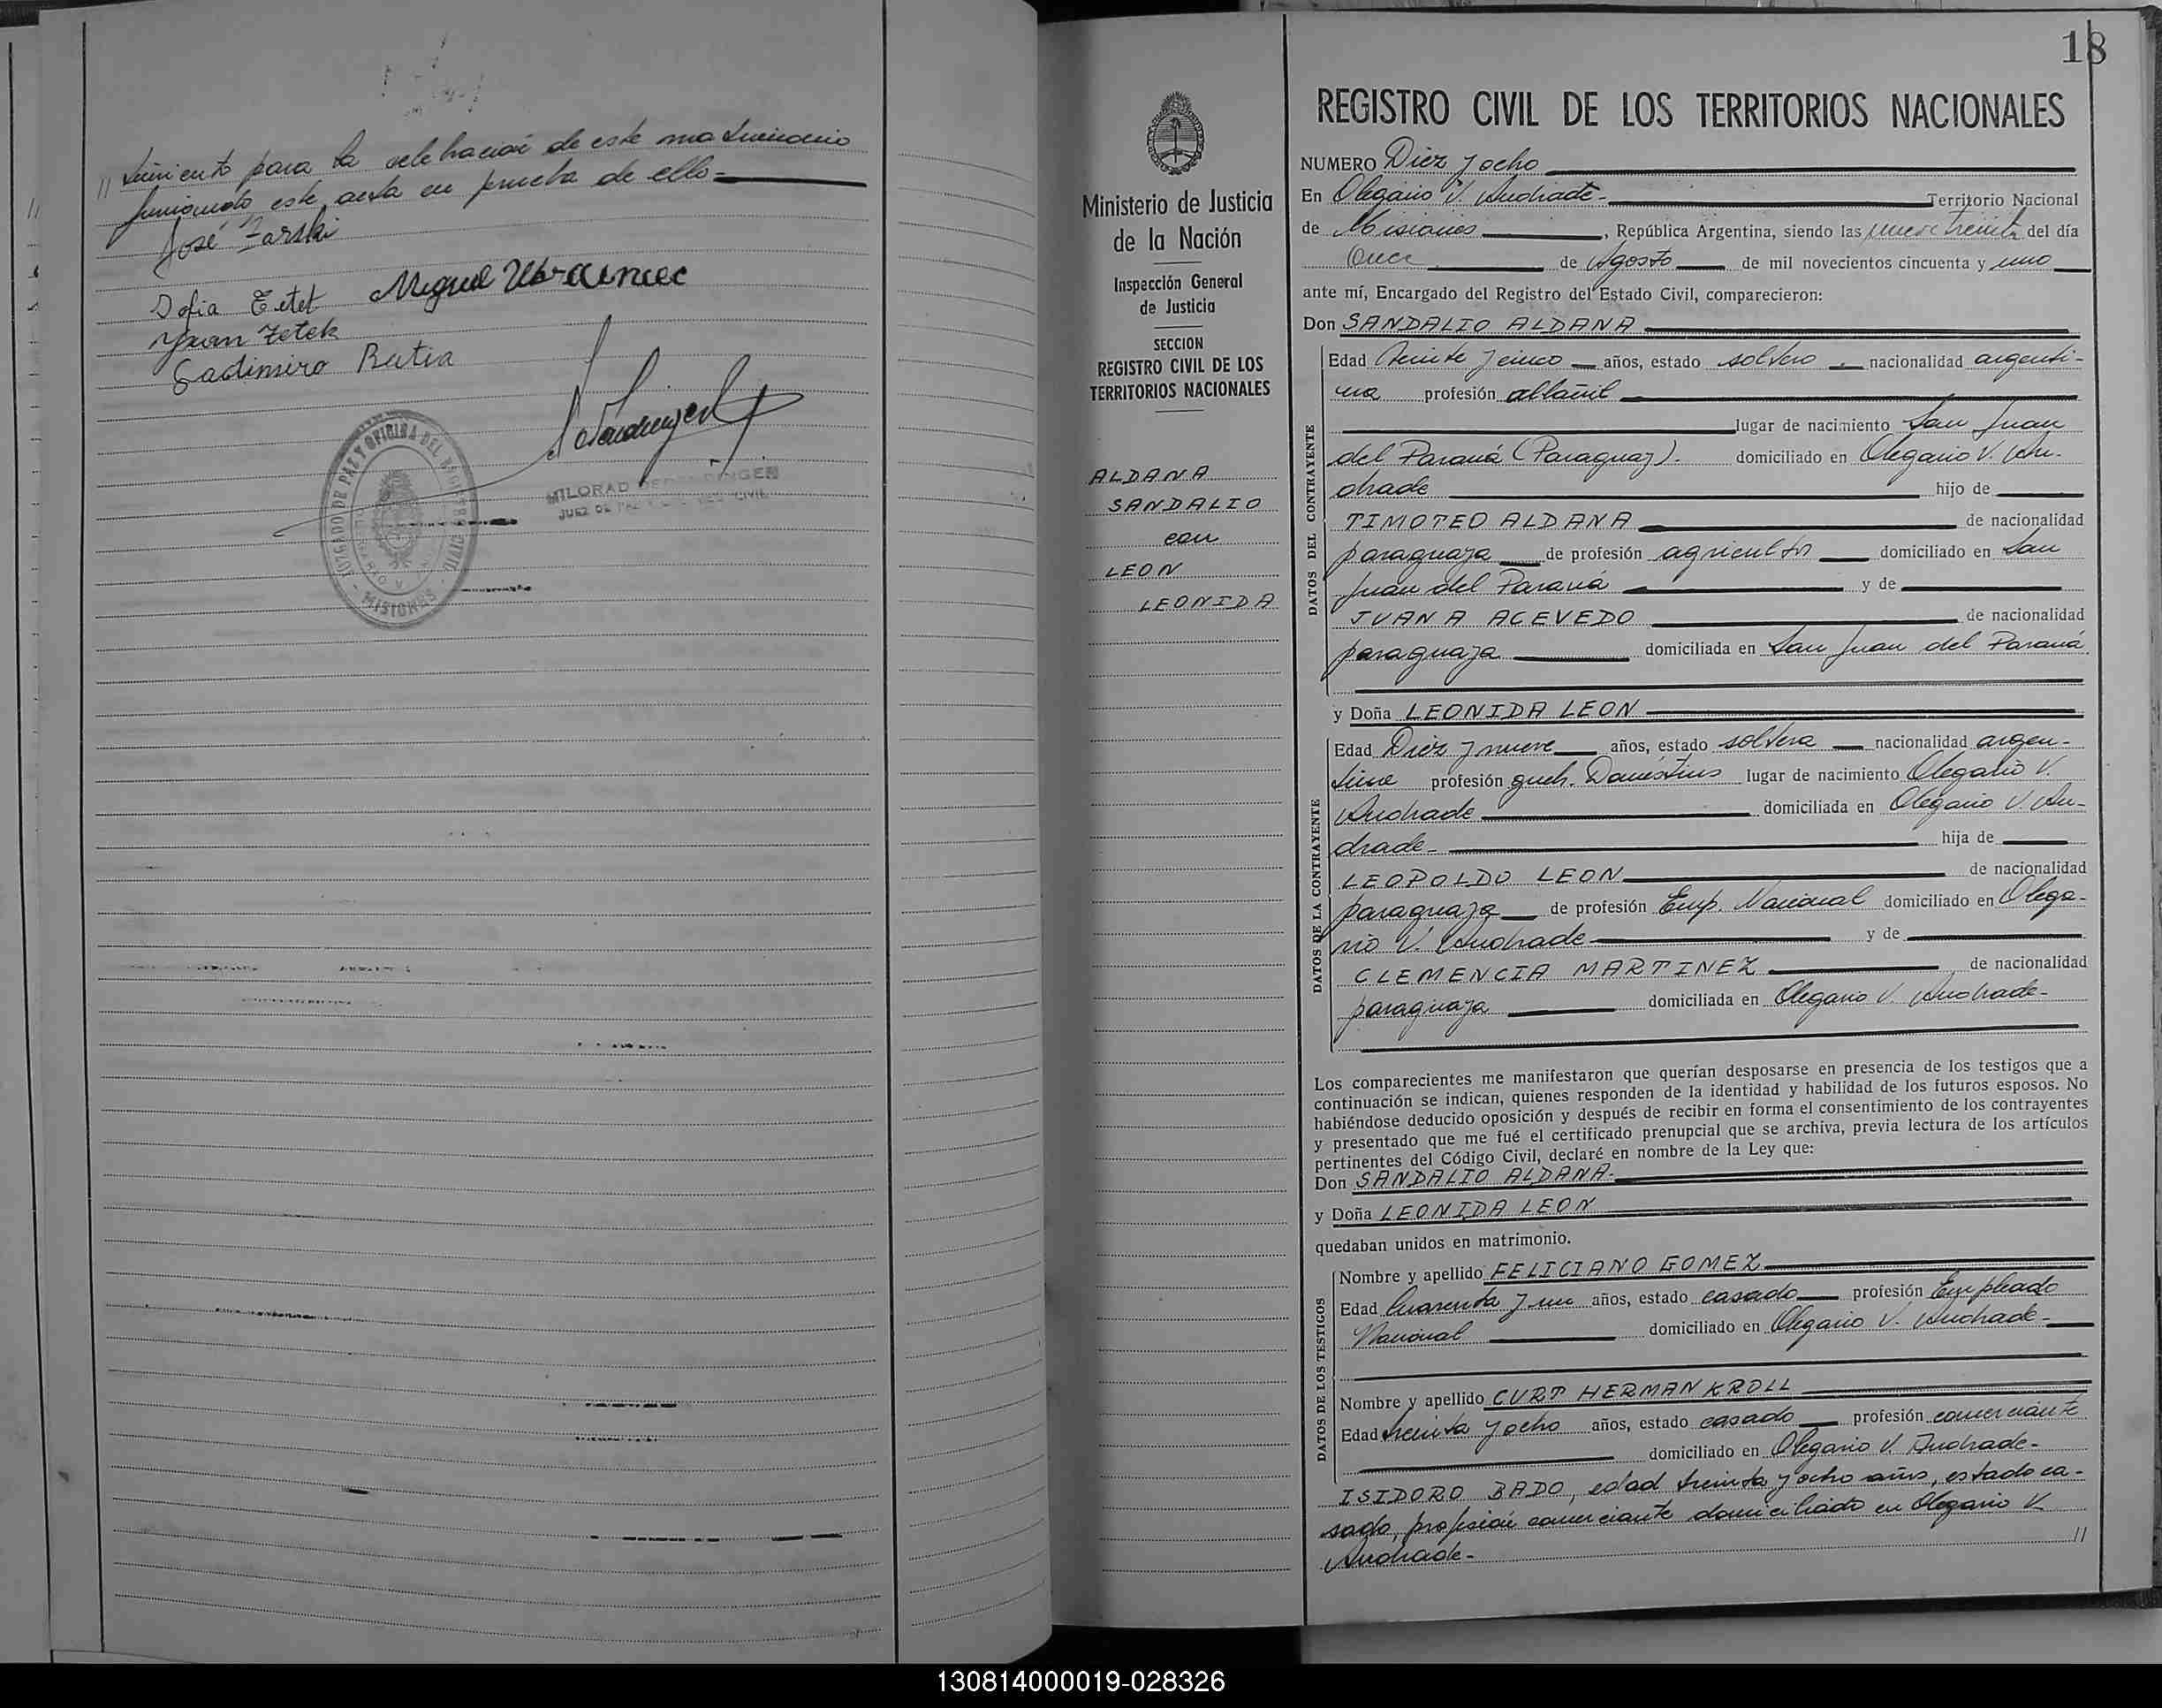 // timiento para la celebración de este matrimonio
firmando este acta en prueba de ello=
José Zarski
Sofia Tetet Miguel
Juan Tetek
Casimiro Batia
JUZGADO DE PAZ Y OFICINA DEL REGISTRO CIVIL
MISIONES
MILORAD
JUEZ DE PAZ CIVIL
18
Ministerio de Justicia
de la Nación
Inspección General
de Justicia
SECCION
REGISTRO CIVIL DE LOS
TERRITORIOS NACIONALES
ALDANA
SANDALIO
con
LEON
LEONIDA
REGISTRO CIVIL DE LOS TERRITORIOS NACIONALES
NUMERO Diez y ocho
En Olegario V. Andrade- Territorio Nacional
de Misiones, República Argentina, siendo las nueve treinta del día
Once de Agosto de mil novecientos cincuenta y uno
ante mí, Encargado del Registro del Estado Civil, comparecieron:
Don SANDALIO ALDANA
DATOS DEL CONTRAYENTE
Edad treinta y cinco años, estado soltero nacionalidad argenti-
na profesión albañil
lugar de nacimiento San Juan
del Paraná (Paraguay). domiciliado en Olegario V. An-
drade hijo de
TIMOTEO ALDANA de nacionalidad
paraguaya de profesión agricultor domiciliado en San
Juan del Paraná y de
JUANA ACEVEDO de nacionalidad
paraguaya domiciliada en San Juan del Paraná
y Doña LEONIDA LEON
DATOS DE LA CONTRAYENTE
Edad Diez y nueve años, estado soltera nacionalidad argen-
tina profesión queh. Domésticos lugar de nacimiento Olegario V.
Andrade domiciliada en Olegario V. An-
drade- hija de
LEOPOLDO LEON de nacionalidad
paraguaya de profesión Emp. Nacional domiciliado en Olega-
rio V. Andrade y de
CLEMENCIA MARTINEZ de nacionalidad
paraguaya domiciliada en Olegario V. Andrade-
Los comparecientes me manifestaron que querían desposarse en presencia de los testigos que a
continuación se indican, quienes responden de la identidad y habilidad de los futuros esposos. No
habiéndose deducido oposición y después de recibir en forma el consentimiento de los contrayentes
y presentado que me fué el certificado prenupcial que se archiva, previa lectura de los artículos
pertinentes del Código Civil, declaré en nombre de la Ley que:
Don SANDALIO ALDANA-
y Doña LEONIDA LEON
quedaban unidos en matrimonio.
DATOS DE LOS TESTIGOS
Nombre y apellido FELICIANO GOMEZ
Edad Cuarenta y un años, estado casado profesión Empleado
Nacional domiciliado en Olegario V. Andrade-
Nombre y apellido CURT HERMAN KROLL
Edad treinta y ocho años, estado casado profesión comerciante
domiciliado en Olegario V. Andrade-
ISIDORO BADO, edad treinta y ocho años, estado ca-
sado, profesión comerciante domiciliado en Olegario V.
Andrade- //
130814000019-028326